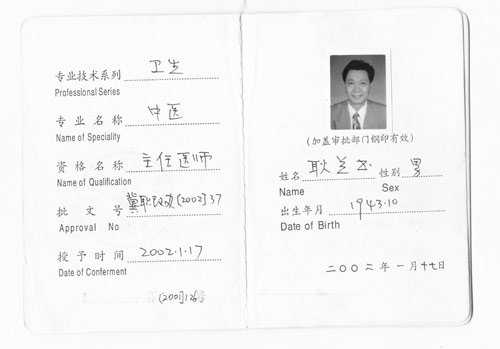 专业技术系列 卫生
Professional Series
专业名称 中医
Name of Speciality
资格名称 主任医师
Name of Qualification
批文号 冀职改办[2002]37
Approval No
授予时间 2002.1.17
Date of Conferment
[2001]126号
(加盖审批部门钢印有效)
姓名 耿兰 性别 男
Name Sex
出生年月 1943.10
Date of Birth
二〇〇二年一月十七日